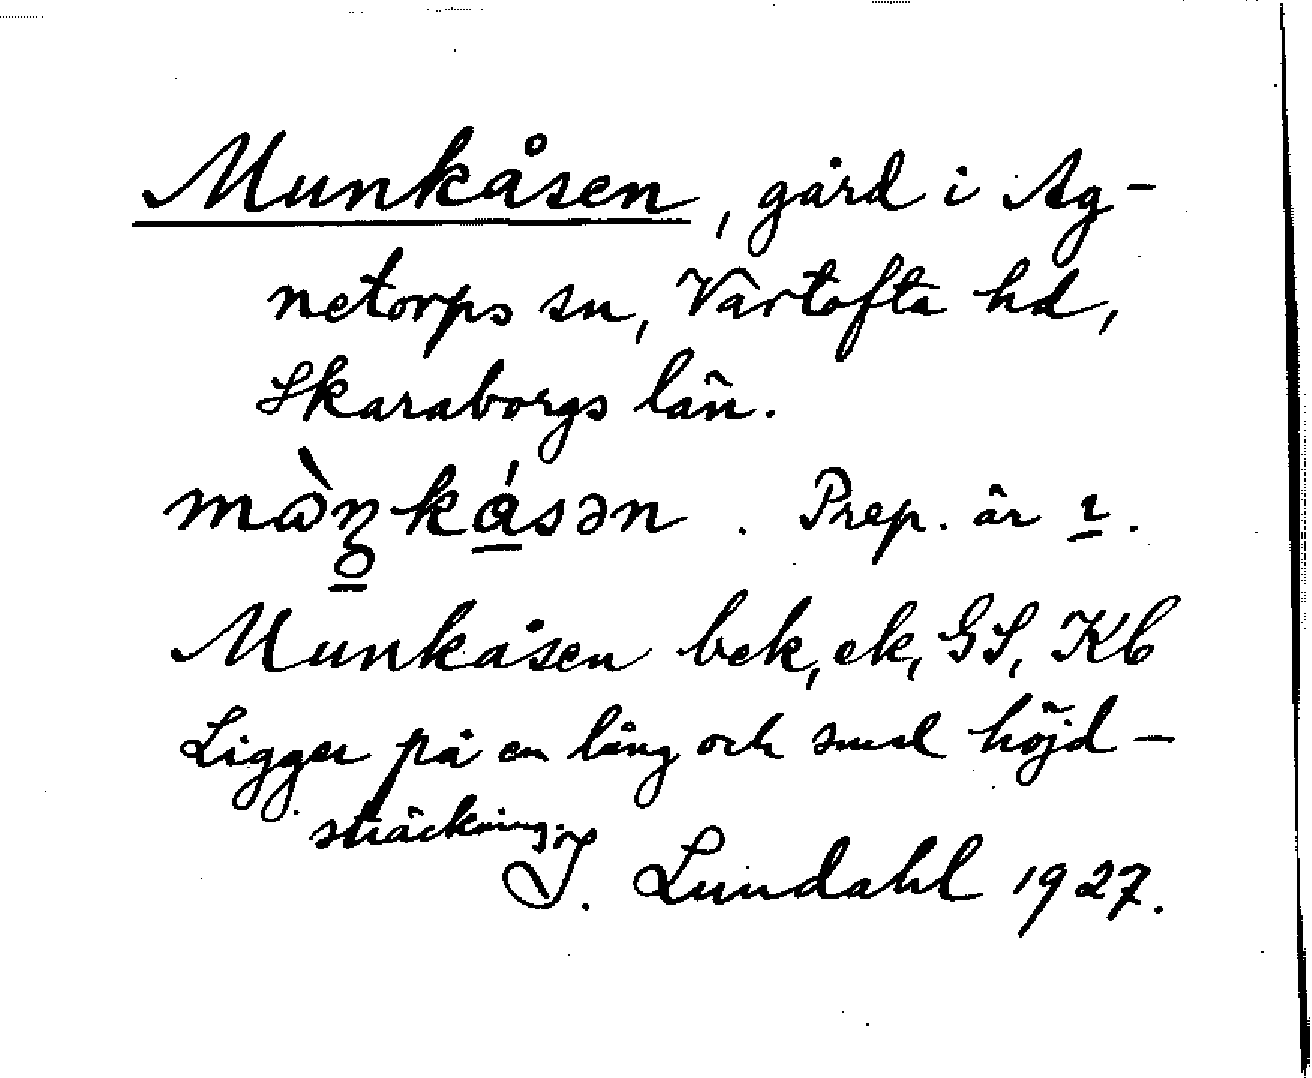 Munkåsen, gård i Ag-
netorps sn, Vartofta hd,
Skaraborgs län.
Prep. är ɩ.
Munkåsen bek, ek, GS, Kb
Ligger på en lång och smal höjd-
sträckning.
I. Lundahl 1927.